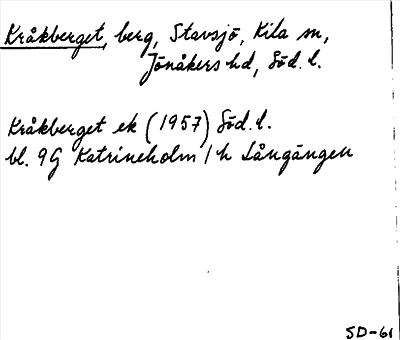 Kråkberget, berg, Stavsjö, Kila sn,
Jönåkers hd, Söd. l.
Kråkberget ek (1957) Söd. l.
bl. 9G Katrineholm / h Långängen
SD-61